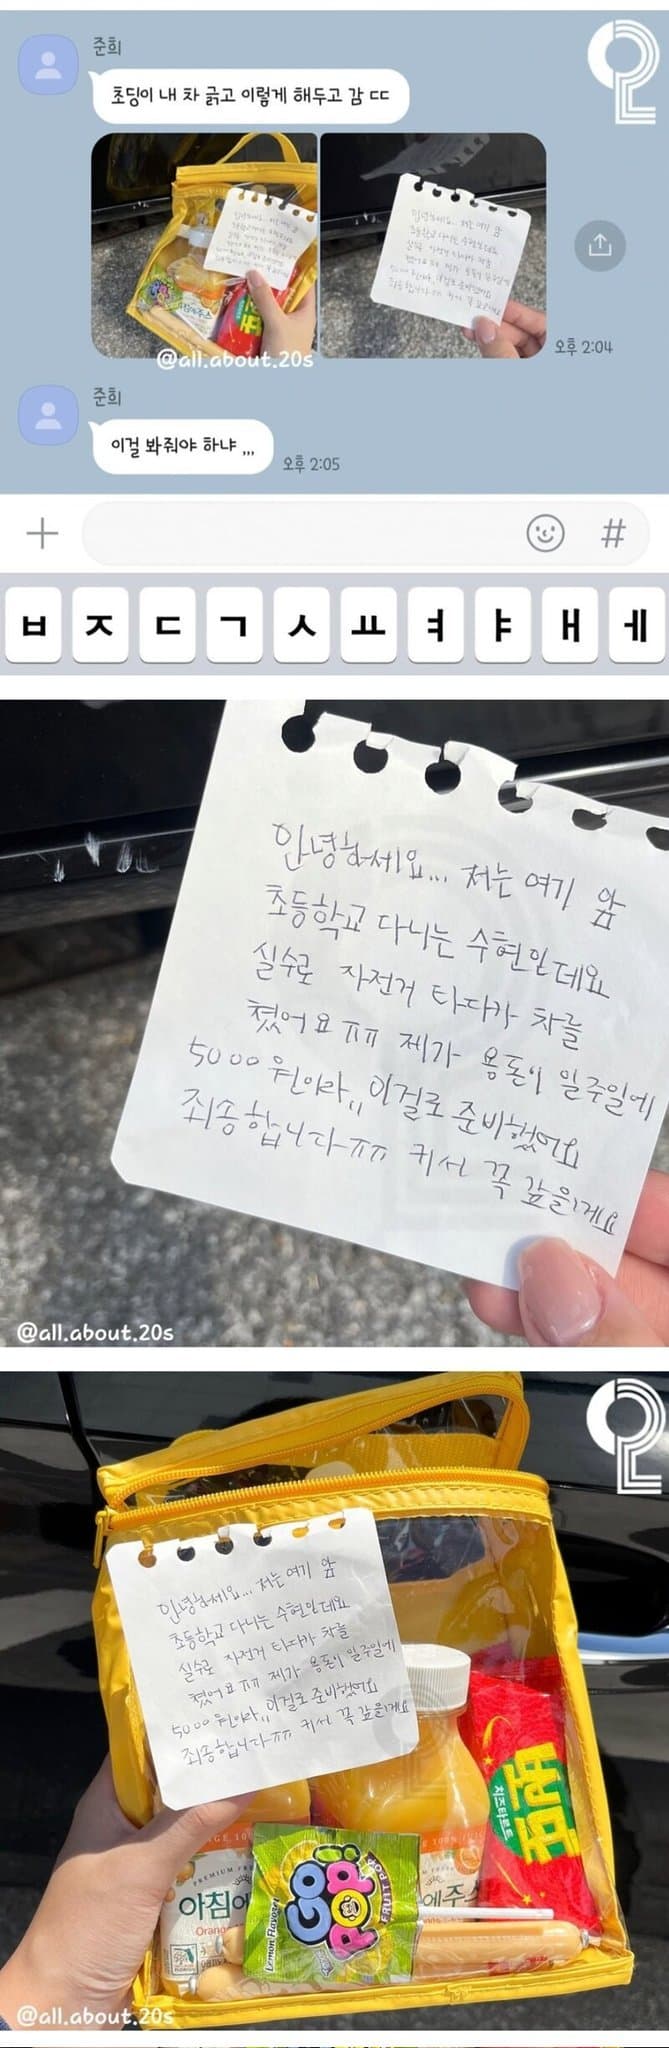 준희
초딩이 내 차 긁고 이렇게 해두고 감 ㄷㄷ
@all.about.20s
오후 2:04
준희
이걸 봐줘야 하냐 ,,,
오후 2:05
+
#
ㅂ ㅈ ㄷ ㄱ ㅅ ㅛ ㅕ ㅑ ㅐ ㅔ
안녕하세요... 저는 여기 앞
초등학교 다니는 수현인데요
실수로 자전거 타다가 차를
쳤어요 ㅠㅠ 제가 용돈이 일주일에
5000원이라,, 이걸로 준비했어요
죄송합니다ㅠㅠ 커서 꼭 갚을게요
@all.about.20s
안녕하세요... 저는 여기 앞
초등학교 다니는 수현인데요
실수로 자전거 타다가 차를
쳤어요ㅠㅠ 제가 용돈이 일주일에
5000원이라,, 이걸로 준비했어요
죄송합니다ㅠㅠ 커서 꼭 갚을게요
치즈타르트
PREMIUM
아침에
Orange
GO!
POP!
FRUIT POP
Lemon Flavored
에주스
@all.about.20s